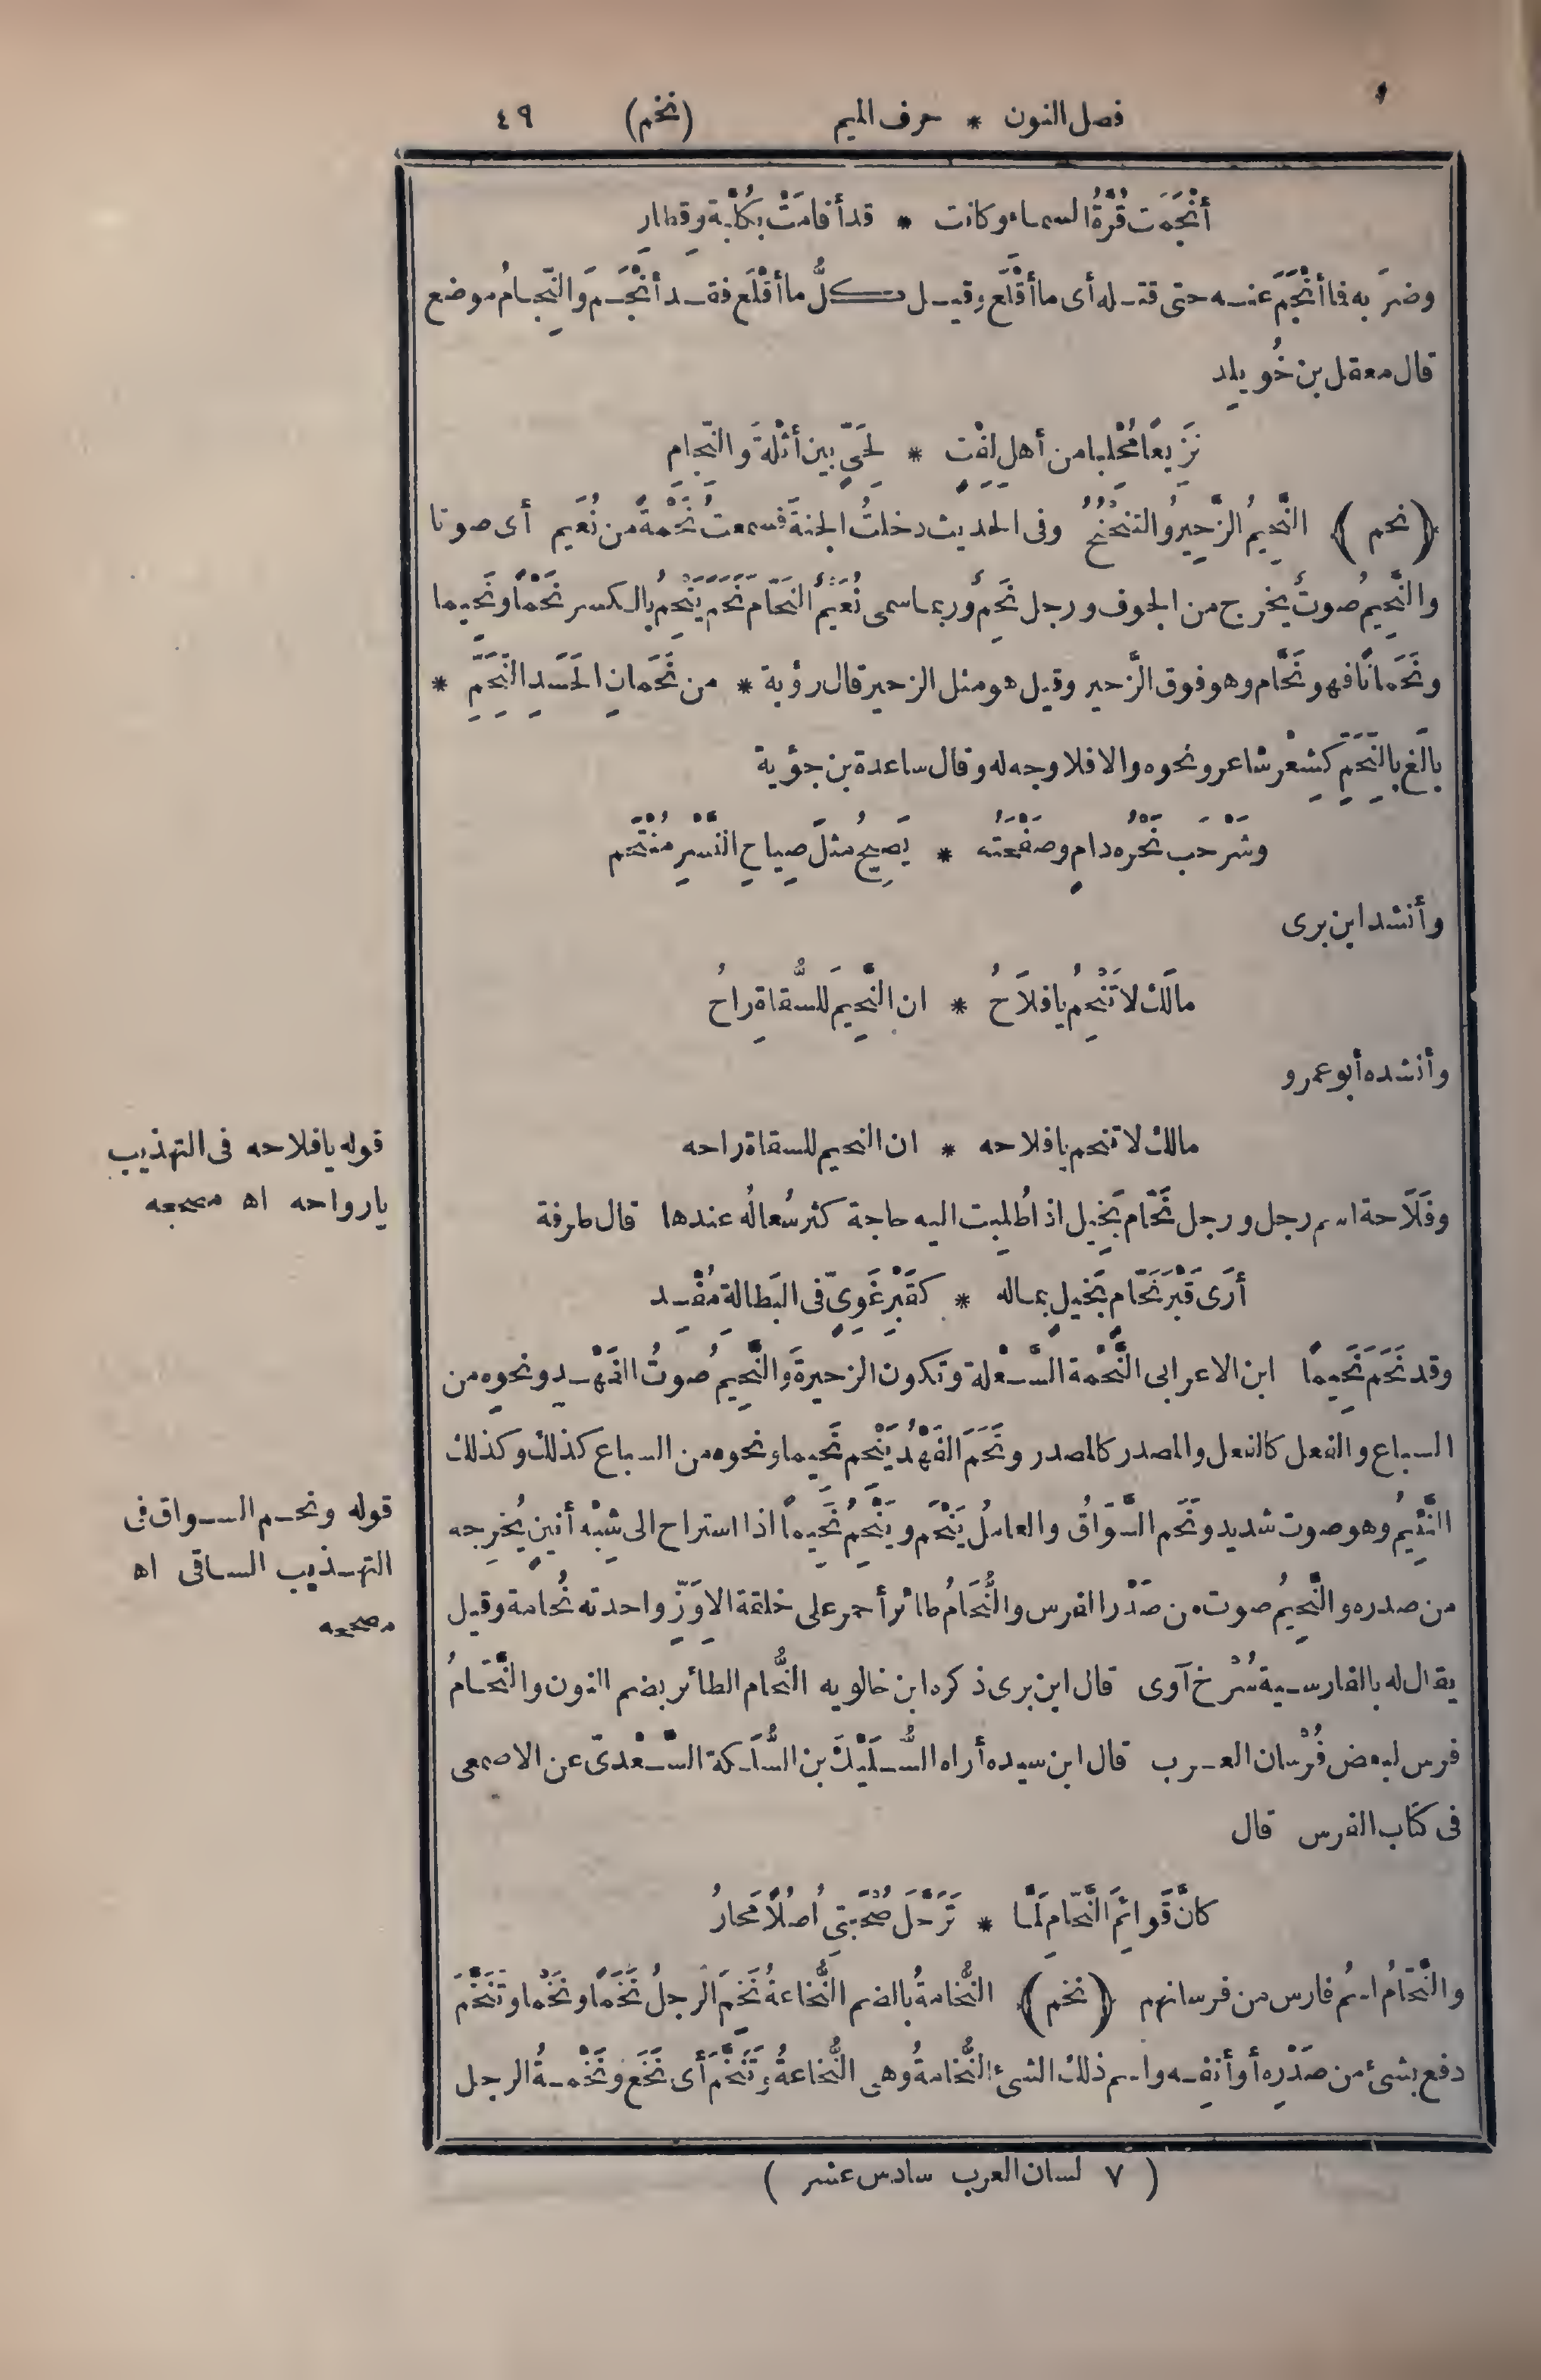 فصل النون * حرف الميم (نخم) ٤٩
أَنْجَمَت قُرَّةُ السماء وكانت * قد أقامَتْ بكُلْبة وقِطارِ
وضرَبه فما أَنْجَمَ عنه حتى قتله أى ما أَقْلَع وقيل كلُّ ما أَقْلَع فقد أَنْجَمَ والنِّجامُ موضع
قال معقل بن خُويلِد
نَزِيعًا مُحْلِبا من أهلِ لِفْتٍ * لِحَىٍّ بين أَثْلَةَ والنِّجامِ
(نحم) النَّحِيمُ الزَّحِيرُ والتنحْنُحُ وفى الحديث دخلتُ الجنةَ فسمعتُ نَحْمةً من نُعَيم أى صوتا
والنَّحِيمُ صوتٌ يخرج من الجوف ورجل نَحِمٌ وربما سمى نُعَيْمٌ النَحّامَ نَحَمَ يَنْحِمُ بالكسر نَحْمًا ونَحِيما
ونَحَمانًا فهو نَحَّام وهو فوق الزَّحير وقيل هو مثل الزحير قال رؤبة * من نَحَمانِ الحَسَدِ النِّحَمِّ *
بالَغ بالنِّحَمِّ كشِعْرٍ شاعر ونحوه والا فلا وجه له وقال ساعدة بن جؤية
وشَرْحَب نَحْرُه دامٍ وصَفْحَتُه * يَصِيحُ مثلَ صِياحِ النَّسْرِ مُنْتَحم
وأنشد ابن برى
مالَك لا تَنْحِمُ يا فلاحُ * ان النَّحِيمَ للسُّقاةِ راحُ
وأنشده أبو عمرو
مالك لا تنحم يا فلاحه * ان النحيم للسقاة راحه
قوله يا فلاحه فى التهذيب
يا رواحه اه مصححه
وفَلَاحة اسم رجل ورجل نَحّام بَخِيل اذا طُلِبت اليه حاجة كثر سُعالُه عندها قال طرفة
أَرَى قَبْرَ نَحَّامٍ بَخيلٍ بماله * كقَبْرِ غَوِىٍّ فى البَطالة مُفْسِد
وقد نَحَم نَحِيمًا ابن الاعرابى النَّحْمة السَّعْلة وتكون الزحيرةَ والنَّحِيمُ صوتُ الفَهْدِ ونحوِه من
السباع والفعل كالفعل والمصدر كالمصدر ونَحَمَ الفَهْدُ يَنْحِم نَحِيما ونحوه من السباع كذلك وكذلك
النَّئِيمُ وهو صوت شديد ونَحَم السَّوَاقُ والعاملُ يَنْحَم ويَنْحِمُ نَحِيمًا اذا استراح الى شِبْه أنينٍ يُخرِجه
قوله ونحم السواق فى
التهذيب الساقى اه
مصححه
من صدره والنَّحِيمُ صوت من صَدْر الفرس والنُّحَامُ طائر أحمر على خلقة الاوَزِّ واحدته نُحامة وقيل
يقال له بالفارسية سُرْخ آوى قال ابن برى ذكره ابن خالويه النُّحام الطائر بضم النون والنَّحّامُ
فرس لبعض فُرْسان العرب قال ابن سيده أراه السُّلَيْكَ بن السُّلَكة السَّعْدىّ عن الاصمعى
فى كتاب الفرس قال
كأنَّ قَوائِمَ النَّحّامِ لَمَّا * تَرَحَّلَ صُحْبَتِى أُصُلًا مَحارُ
والنَّحّامُ اسمُ فارس من فرسانهم (نخم) النُّخامةُ بالضم النُّخاعةُ نَخِمَ الرجلُ نَخَمًا ونَخْما وتَنَخَّمَ
دفع بشئ من صَدْرِه أو أَنفِه واسم ذلك الشئ النُّخامةُ وهى النُّخاعةُ وتَنَخَّمَ أى نَخَع ونَخْمةُ الرجل
( ٧ لسان العرب سادس عشر )